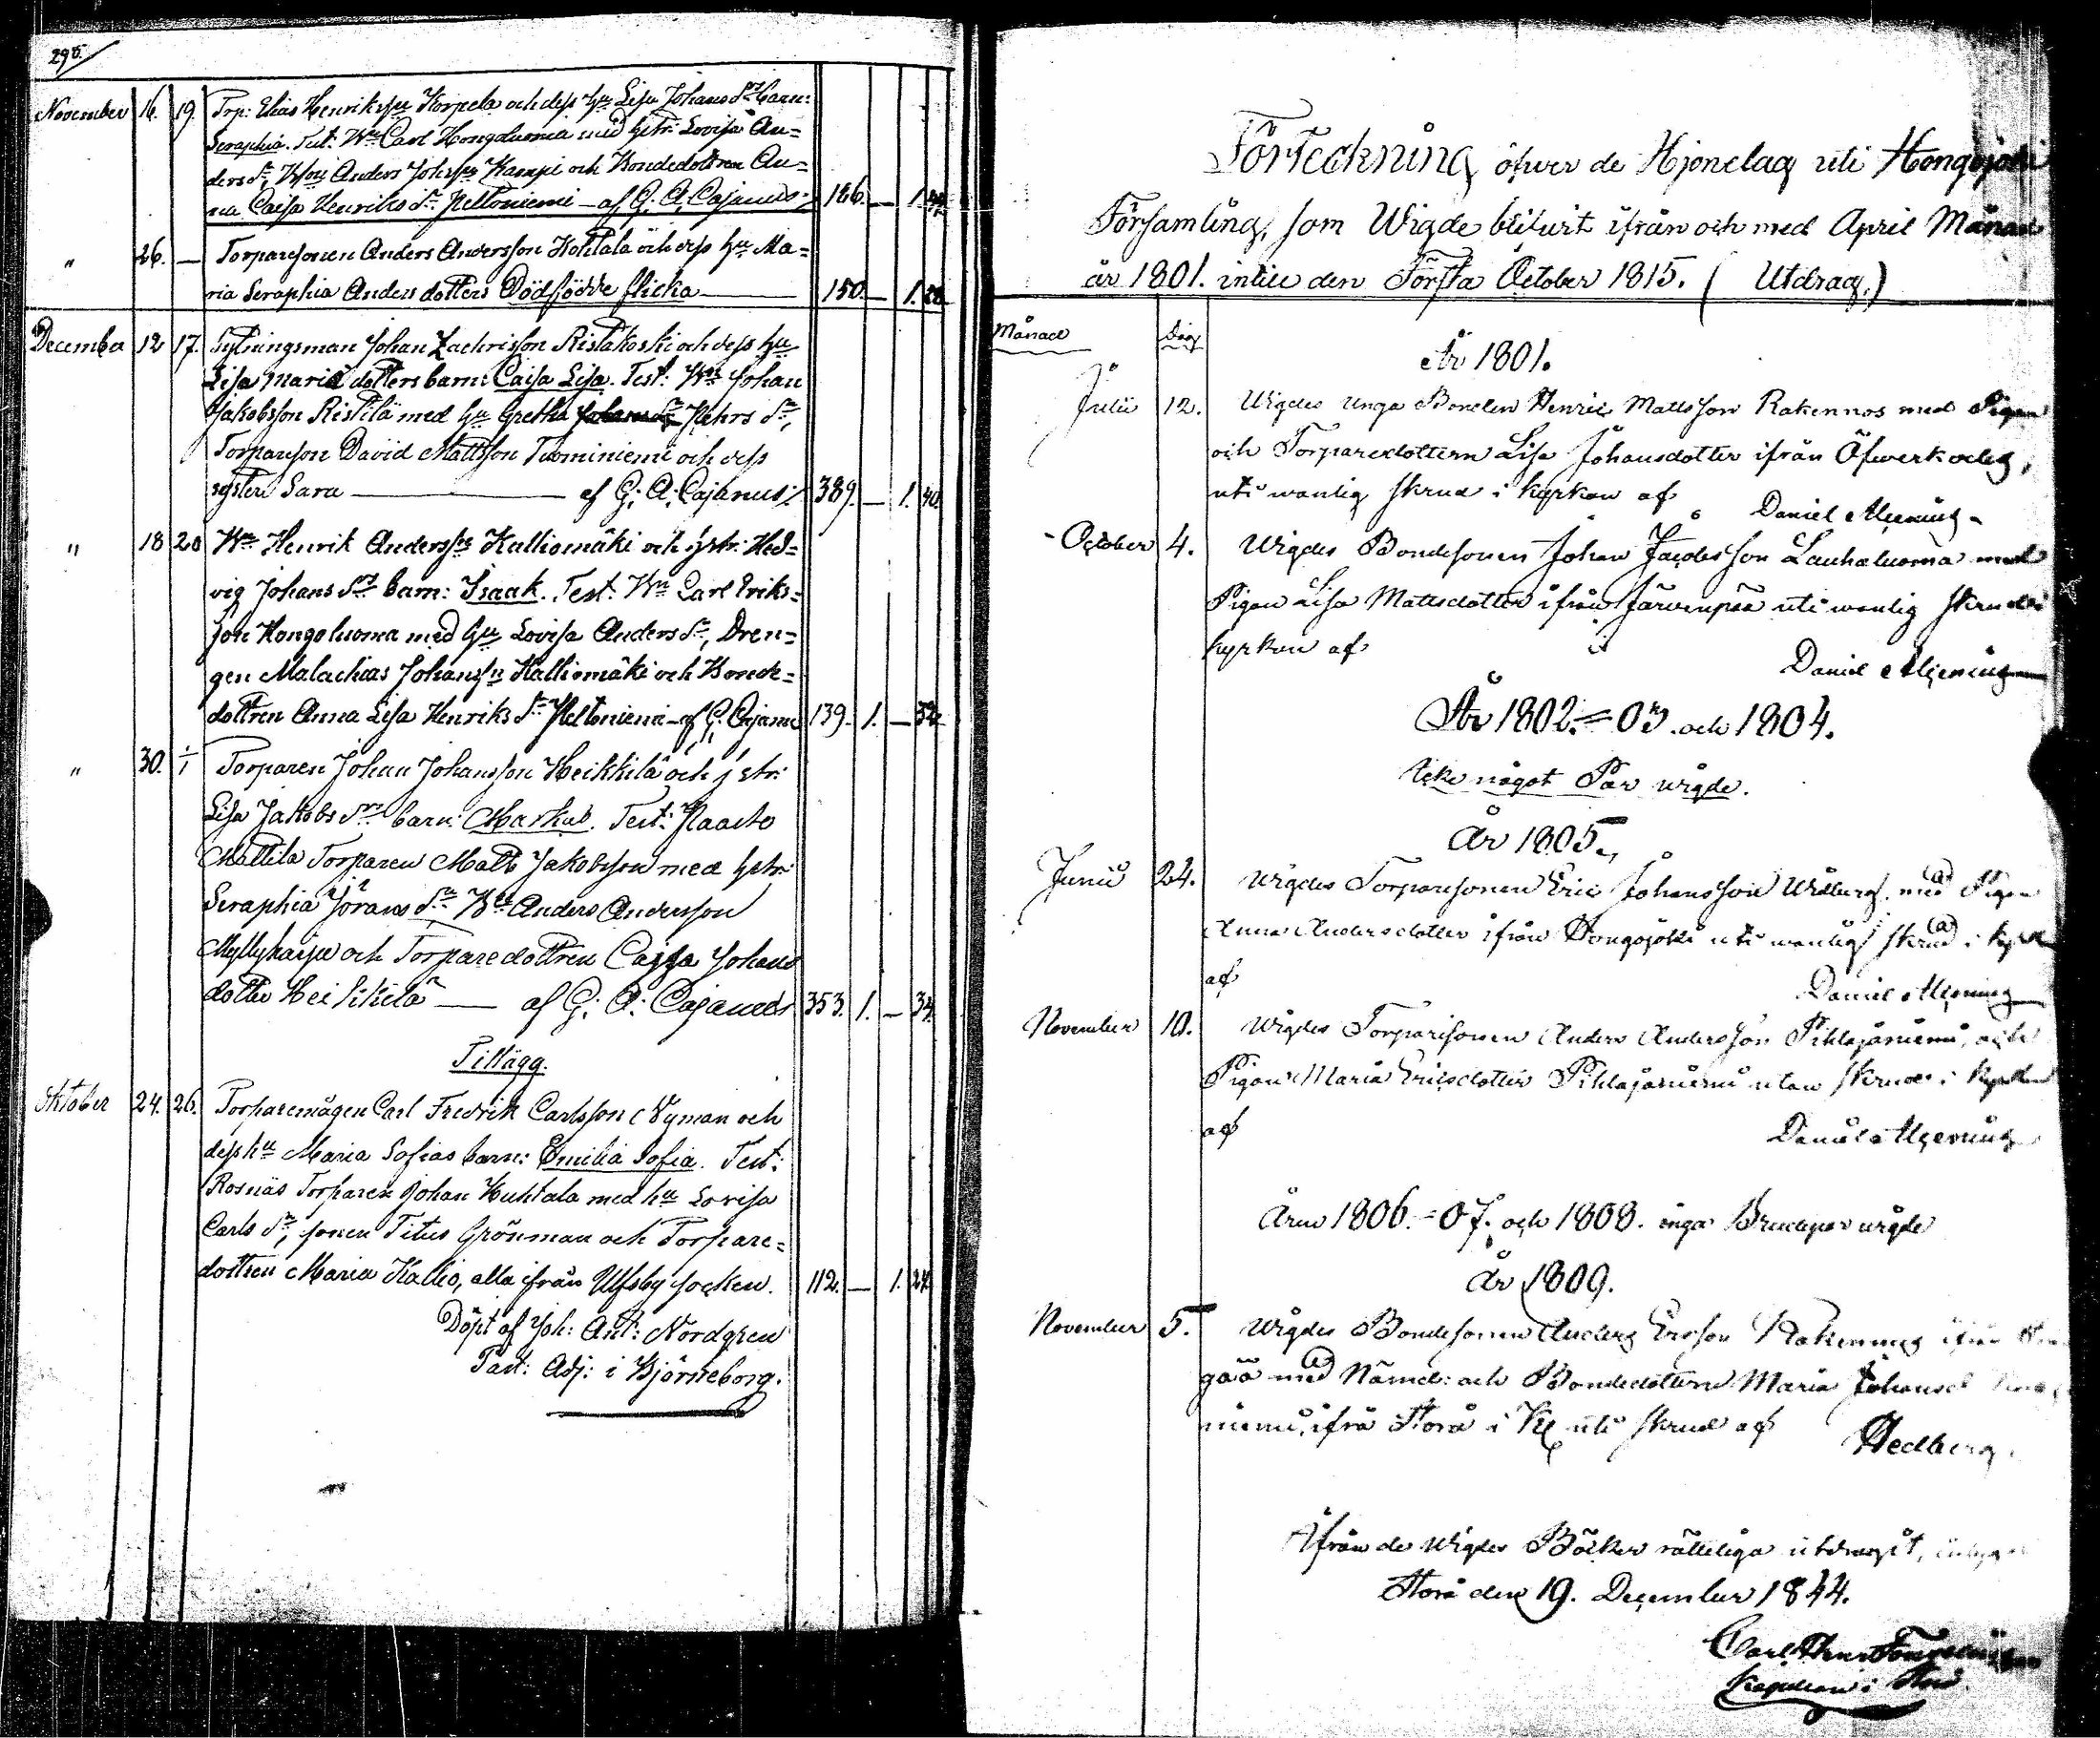 295.
November 16. 19. Trp: Elias Henrikssn Korpela och dess hu Lisa Johans Drs barn:
Seraphia. Test: Bn Carl Hongoluoma med hstr: Lovisa An=
ders Dr, Bson Anders Johssn Kampi och Bondedottren An=
na Caisa Henriks Dr Peltoniemi — af G. A. Cajanus 186. — 1.
" 26. — Torparesonen Anders Andersson Kohtala och dess hu Ma=
ria Seraphia Anders dotters Dödfödde flicka — 150. — 1. 28.
December 12 17. Sytningsman Johan Zachrisson Ristakoski och dess hu
Lisa Maria dotters barn: Caisa Lisa. Test: Bn Johan
Jakobsson Ristilä med hu Gretha Johans Dr Pehrs Dr,
Torparson David Mattsson Tuominiemi och dess
syster Sara — af G: A: Cajanus 389. — 1. 40.
" 18 20 Bn Henrik Anderssns Kalliomäki och hstr: Hed=
vig Johans Drs barn: Isaak. Test: Bn Carl Eriks=
son Hongoluoma med hu Lovisa Anders Dr, Dren=
gen Malachias Johanssn Kalliomäki och Bonde=
dottren Anna Lisa Henriks Dr Peltoniemi — af G. Cajanus 139. 1. — 32.
" 30. 1/1 Torparen Johan Johansson Heikkilä och hstr:
Lisa Jakobs Drs barn: Markus. Test: Paasto
Mattila Torparen Matts Jakobsson med hstr:
Seraphia Jörans Dr Bn Anders Andersson
Myllyhaipu och Torparedottren Cajsa Johans
dotter Heikkilä — af G: A: Cajanus 353. 1. — 34.
Tillägg.
Oktober 24. 26. Torparemågen Carl Fredrik Carlsson Nyman och
dess hu Maria Sofias barn: Emilia Sofia. Test:
Rosnäs Torparen Johan Huhtala med hu Lovisa
Carls Dr, sonen Titus Grönman och Torpare=
dottren Maria Kallio, alla ifrån Ulfsby socken. 112. — 1. 24.
Döpt af Joh: Ant: Nordgren
Past: Adj: i Björneborg.
Förteckning öfver de Hjonelag uti Hongojoki
Församling, som Wigde blifvit ifrån och med April Månad
år 1801. intill den Första October 1815. (Utdrag.)
Månad Dag
År 1801.
Julii 12. Wigdes Unga Bonden Henric Mattsson Rakennos med Pigan
och Torparedottern Lisa Johansdotter ifrån Öfverkodey,
uti wanlig skrud i kyrkan af Daniel
October 4. Wigdes Bondesonen Johan Jacobsson Lauhaluoma med
Pigan Lisa Mattsdotter ifrån Järvenpää uti wanlig skrud i
kyrkan af
Daniel
År 1802.=03. och 1804.
Icke något Par wigde.
År 1805.
Junii 24. Wigdes Torparesonen Eric Johansson Widberg. med Pigan
Anna Andersdotter ifrån Hongojoki uti wanlig skrud i kyrkan
af
Daniel
November 10. Wigdes Torparesonen Anders Andersson Pihlajaniemi, och
Pigan Maria Ericsdotter Pihlajaniemi utan skrud i kyrkan
af Daniel
Åren 1806.=07. och 1808. inga Brudepar wigde
År 1809.
November 5. Wigdes Bondesonen Anders Ersson Rakennus ifrån
med Nämd: och Bondedottern Maria Johansd
niemi, ifrå Storå i K uti skrud af Hedberg.
Ifrån de Wigdes Böcker rätteliga utdragit,
Storå den 19. December 1844.
Carl Henr
Kapellan i Storå.